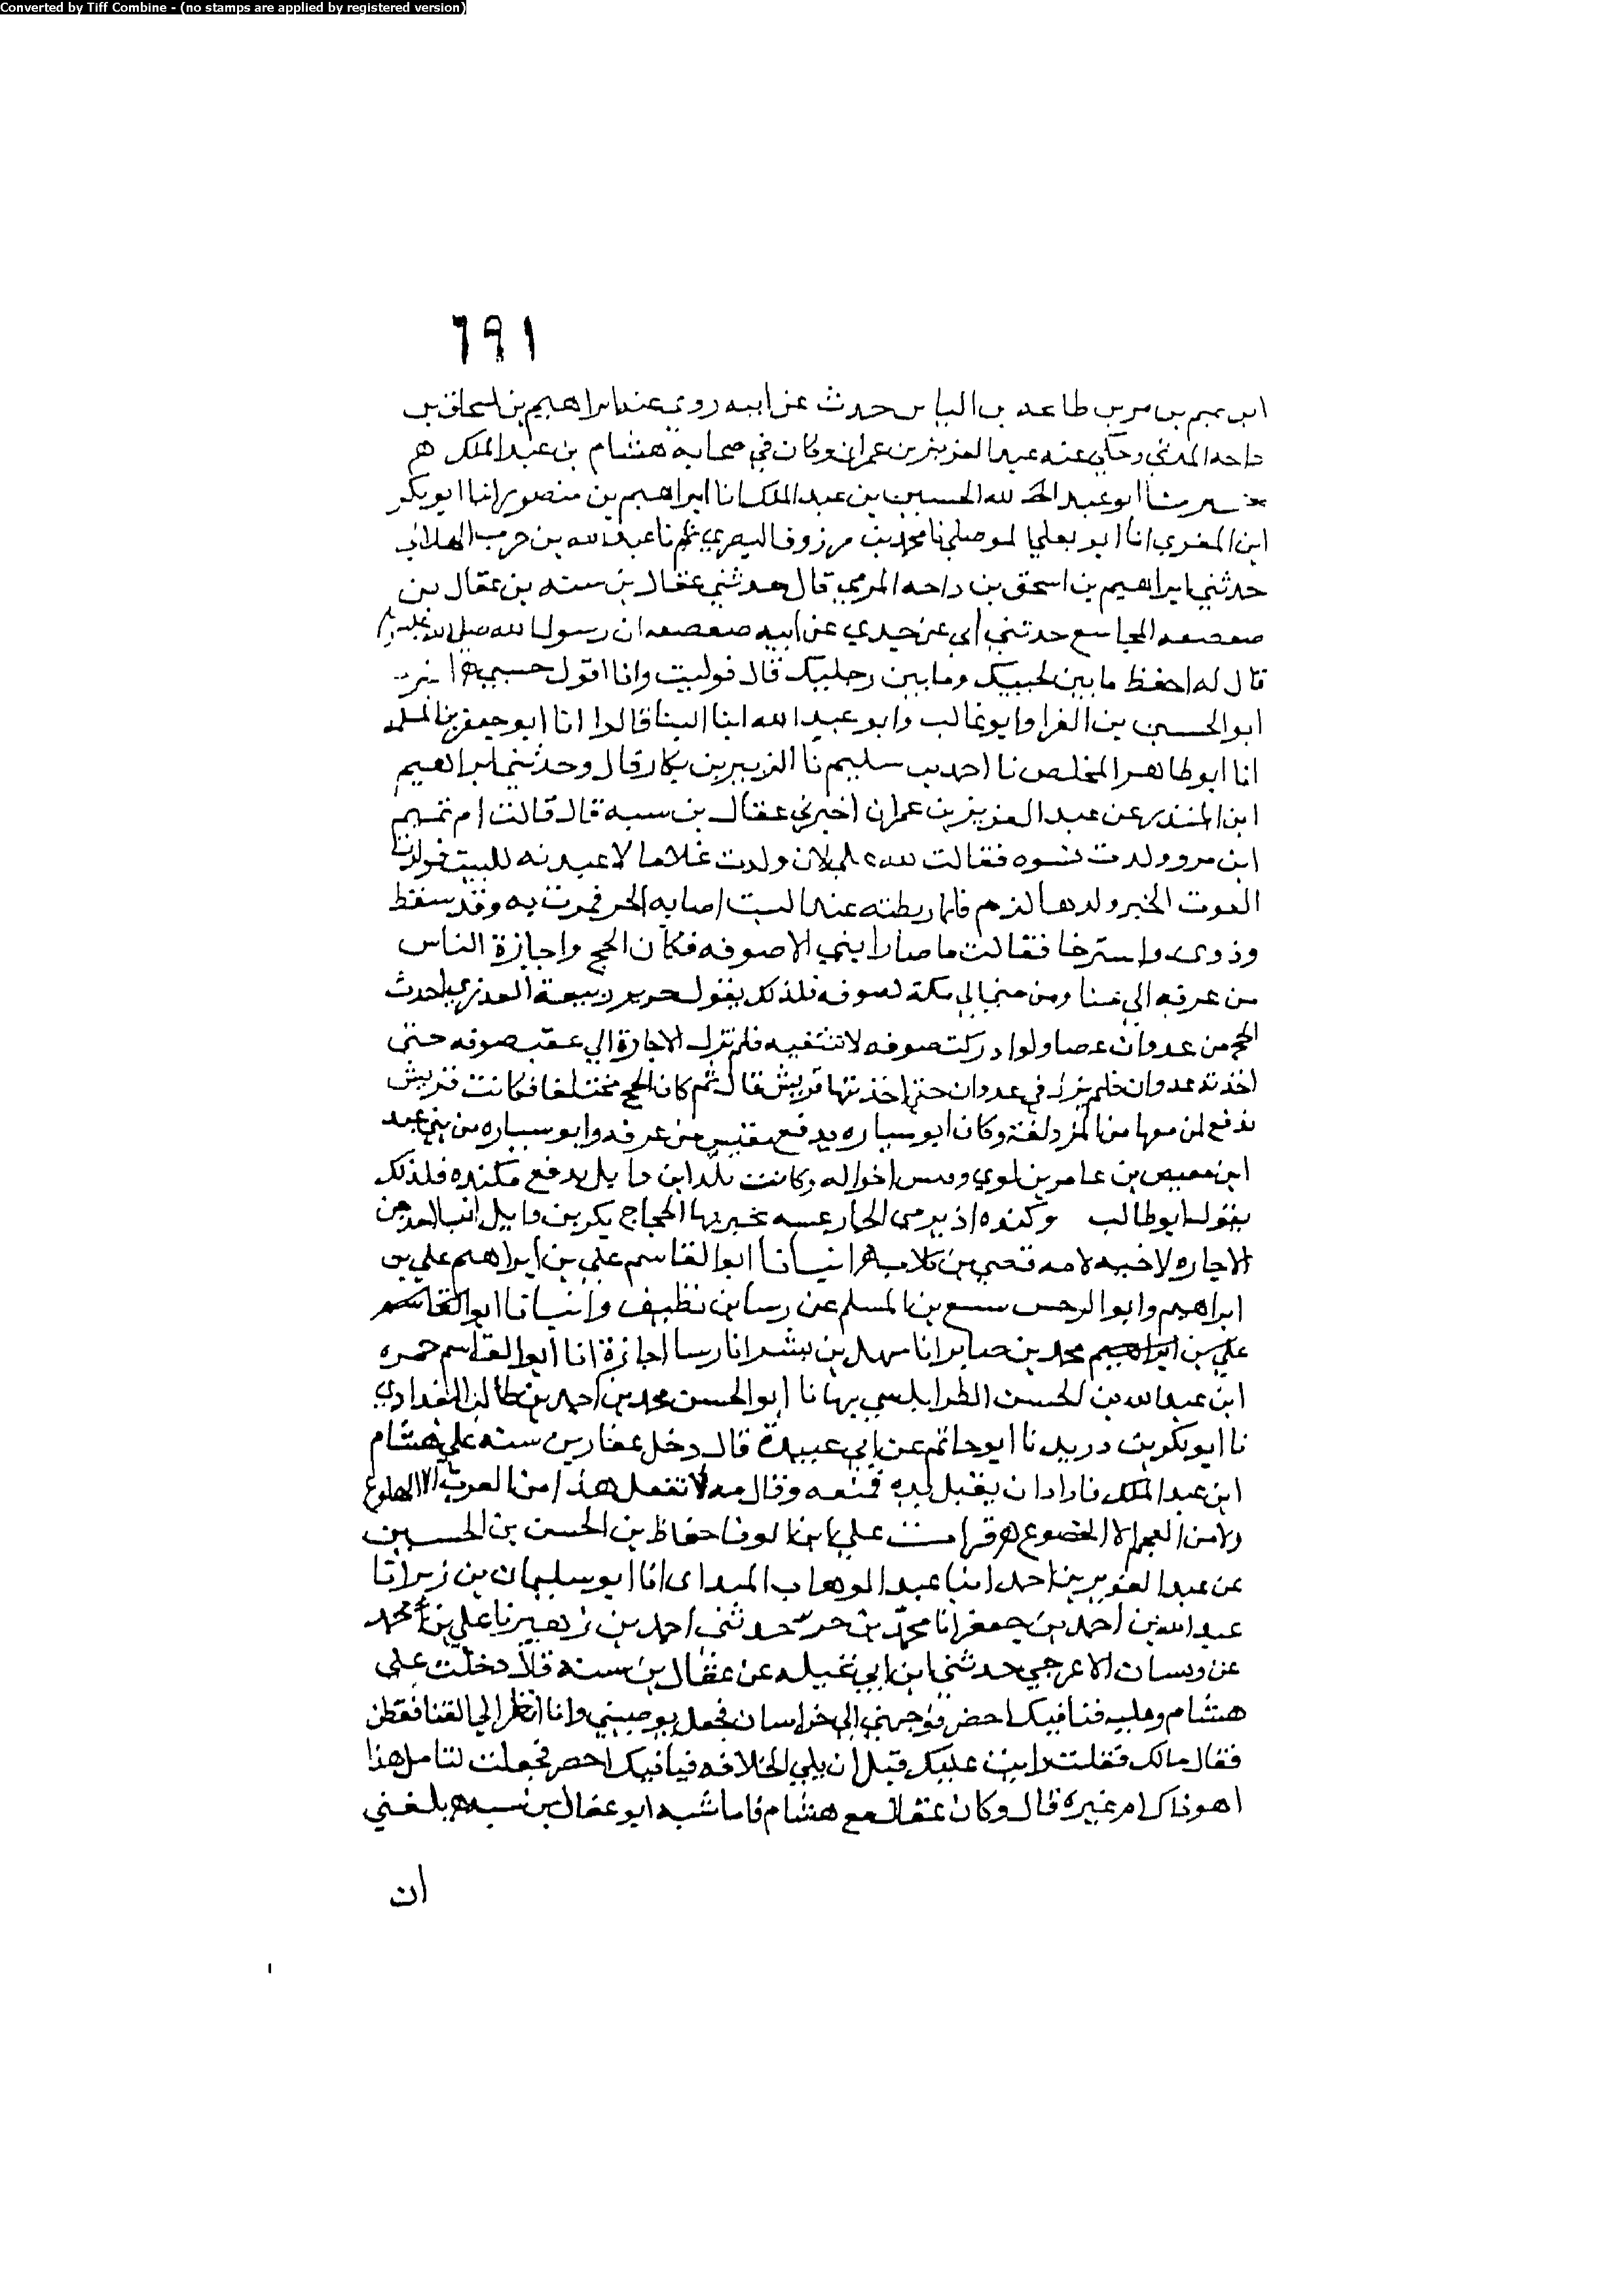 Converted by Tiff Combine - (no stamps are applied by registered version)
٦٩١
ابن مر بن طابخة بن الياس حدث عن ابيه روى عنه ابراهيم بن اسحاق بن
داحه المدني وحكى عنه عبد العزيز بن عمران وكان في صحابة هشام بن عبد الملك هـ
ابو عبد الله الحسين بن عبد الملك انا ابراهيم بن منصور انا ابو بكر
ابن المقري انا ابو يعلي الموصلي نا محمد بن مرزوق البصري نا عبد الله بن حرب الهلالي
حدثني ابراهيم بن اسحق بن داحه المزني قال حدثني عقال بن سته بن عقال بن
صعصعه المجاسع حدثني ابي عن جدي عن ابيه صعصعه ان رسول الله صلى الله عليه
قال له احفظ ما بين لحييك وما بين رجليك قال فوليت وانا اقول حسبي
ابو الحسين بن الفرا وابو غالب وابو عبد الله ابنا البنا قالوا انا ابو جعفر بن المسلمه
انا ابو طاهر المخلص نا احمد بن سليم نا الزبير بن بكار قال وحدثني ابراهيم
ابن المنذر عن عبد العزيز بن عمران اخبرني عقال بن سبه قال قالت ام تميم
ابن مر وولدت نسوه فقالت لله علي لان ولدت غلاما لاعبدنه للبيت فولدت
الغوث ولدها لزم فلما ربطته عند البيت اصابه الحر فمرت به وقد سقط
وذوى واسترخا فقالت ما صار ابني الا صوفه فكان الحج واجازة الناس
من عرفه الي منا ومن منى الي مكة لصوفه فلذلك يقول بن ربيعة العدزي
الحج من عدوان عصا ولو ادركت صوفه لا تشفيه فلم تزل الاجازة الي عقب صوفه حتى
اخذته عدوان فلم يزل في عدوان حتى اخذتها قريش قال ثم كان الحج مختلفا فكانت قريش
تدفع لمن معها من المزدلفة وكان ابو سياره يدفع بقيس من عرفه وابو سياره من بني عبد
ابن معيص بن عامر بن لوي وقيس اخواله وكانت بكر ابن وايل يدفع بكنده فلذلك
يقول ابو طالب وكنده اذ يرمى الجمار عسه يخبر بها الحجاج بكر بن وايل
الاجاره لاخيه لامه قصي بن كلاب هـ انبانا ابو القاسم علي بن ابراهيم علي بن
ابراهيم وابو الوحش سبيع بن المسلم عن رسا بن نظيف وانبانا ابو القاسم
علي بن ابراهيم محمد بن صابر انا سهل بن بشر انا رسا اجازة انا ابو القاسم حمزه
ابن عبد الله بن الحسن الطرابلسي بها نا ابو الحسن محمد بن احمد بن طالب البغدادي
نا ابو بكر بن دريد نا ابو حاتم عن ابي عبيدة قال دخل عقار بن سته علي هشام
ابن عبد الملك فاراد ان يقبل يده فمنعه وقال مه لا تفعل هذا من العرب الا الهلوع
ولا من العجم الا الخضوع هـ قرات علي ابي الوفا حفاظ بن الحسن بن الحسين
عن عبد العزيز بن احمد انبا عبد الوهاب الميداني انا ابو سليمان بن زبر انا
عبد الله بن احمد بن جعفر انا محمد بن جرير حدثني احمد بن زهير نا علي بن محمد
عن وسان الاعرجي حدثني ابن ابي نخيله عن عقال بن سته قال دخلت علي
هشام وعليه قبا فنك اخضر فوجهني الي خراسان فجعل يوصيني وانا انظر الي القبا ففطن
فقال مالك فقلت رايت عليك قبل ان يلي الخلافه قبا فنك اخضر فجعلت لتامل هذا
اهو ذاك ام غيره قال وكان عقال مع هشام فاما شبه ابو عقال بن سبه بلغني
ان